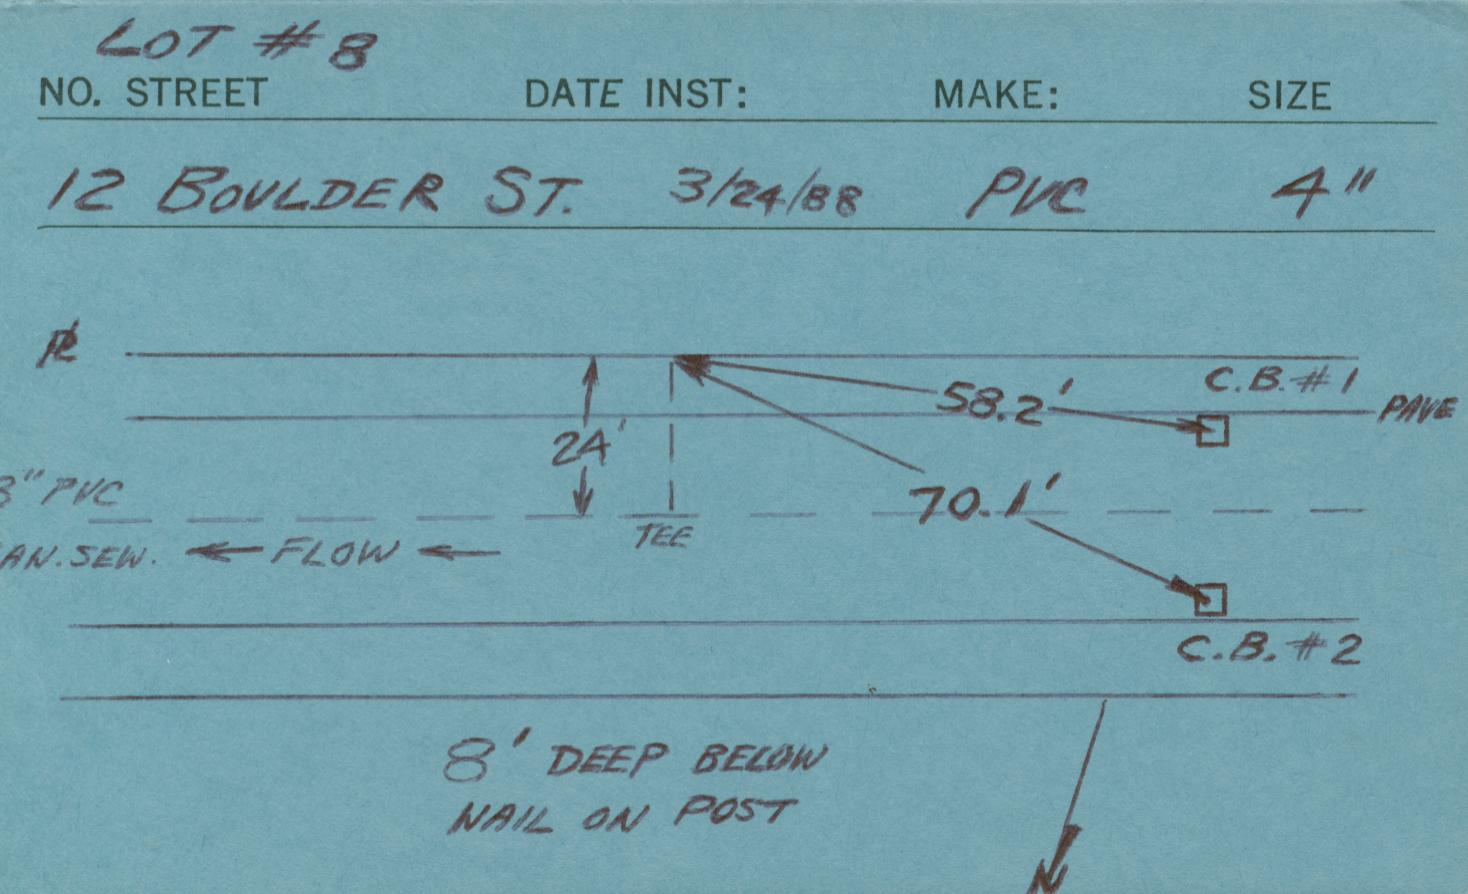 LOT #8
NO. STREET DATE INST: MAKE: SIZE
12 BOULDER ST. 3/24/88 PVC 4"
PL
C.B. #1
58.2'
PAVE
24'
8" PVC
70.1'
TEE
AN. SEW. FLOW
C.B. #2
8' DEEP BELOW
NAIL ON POST
N